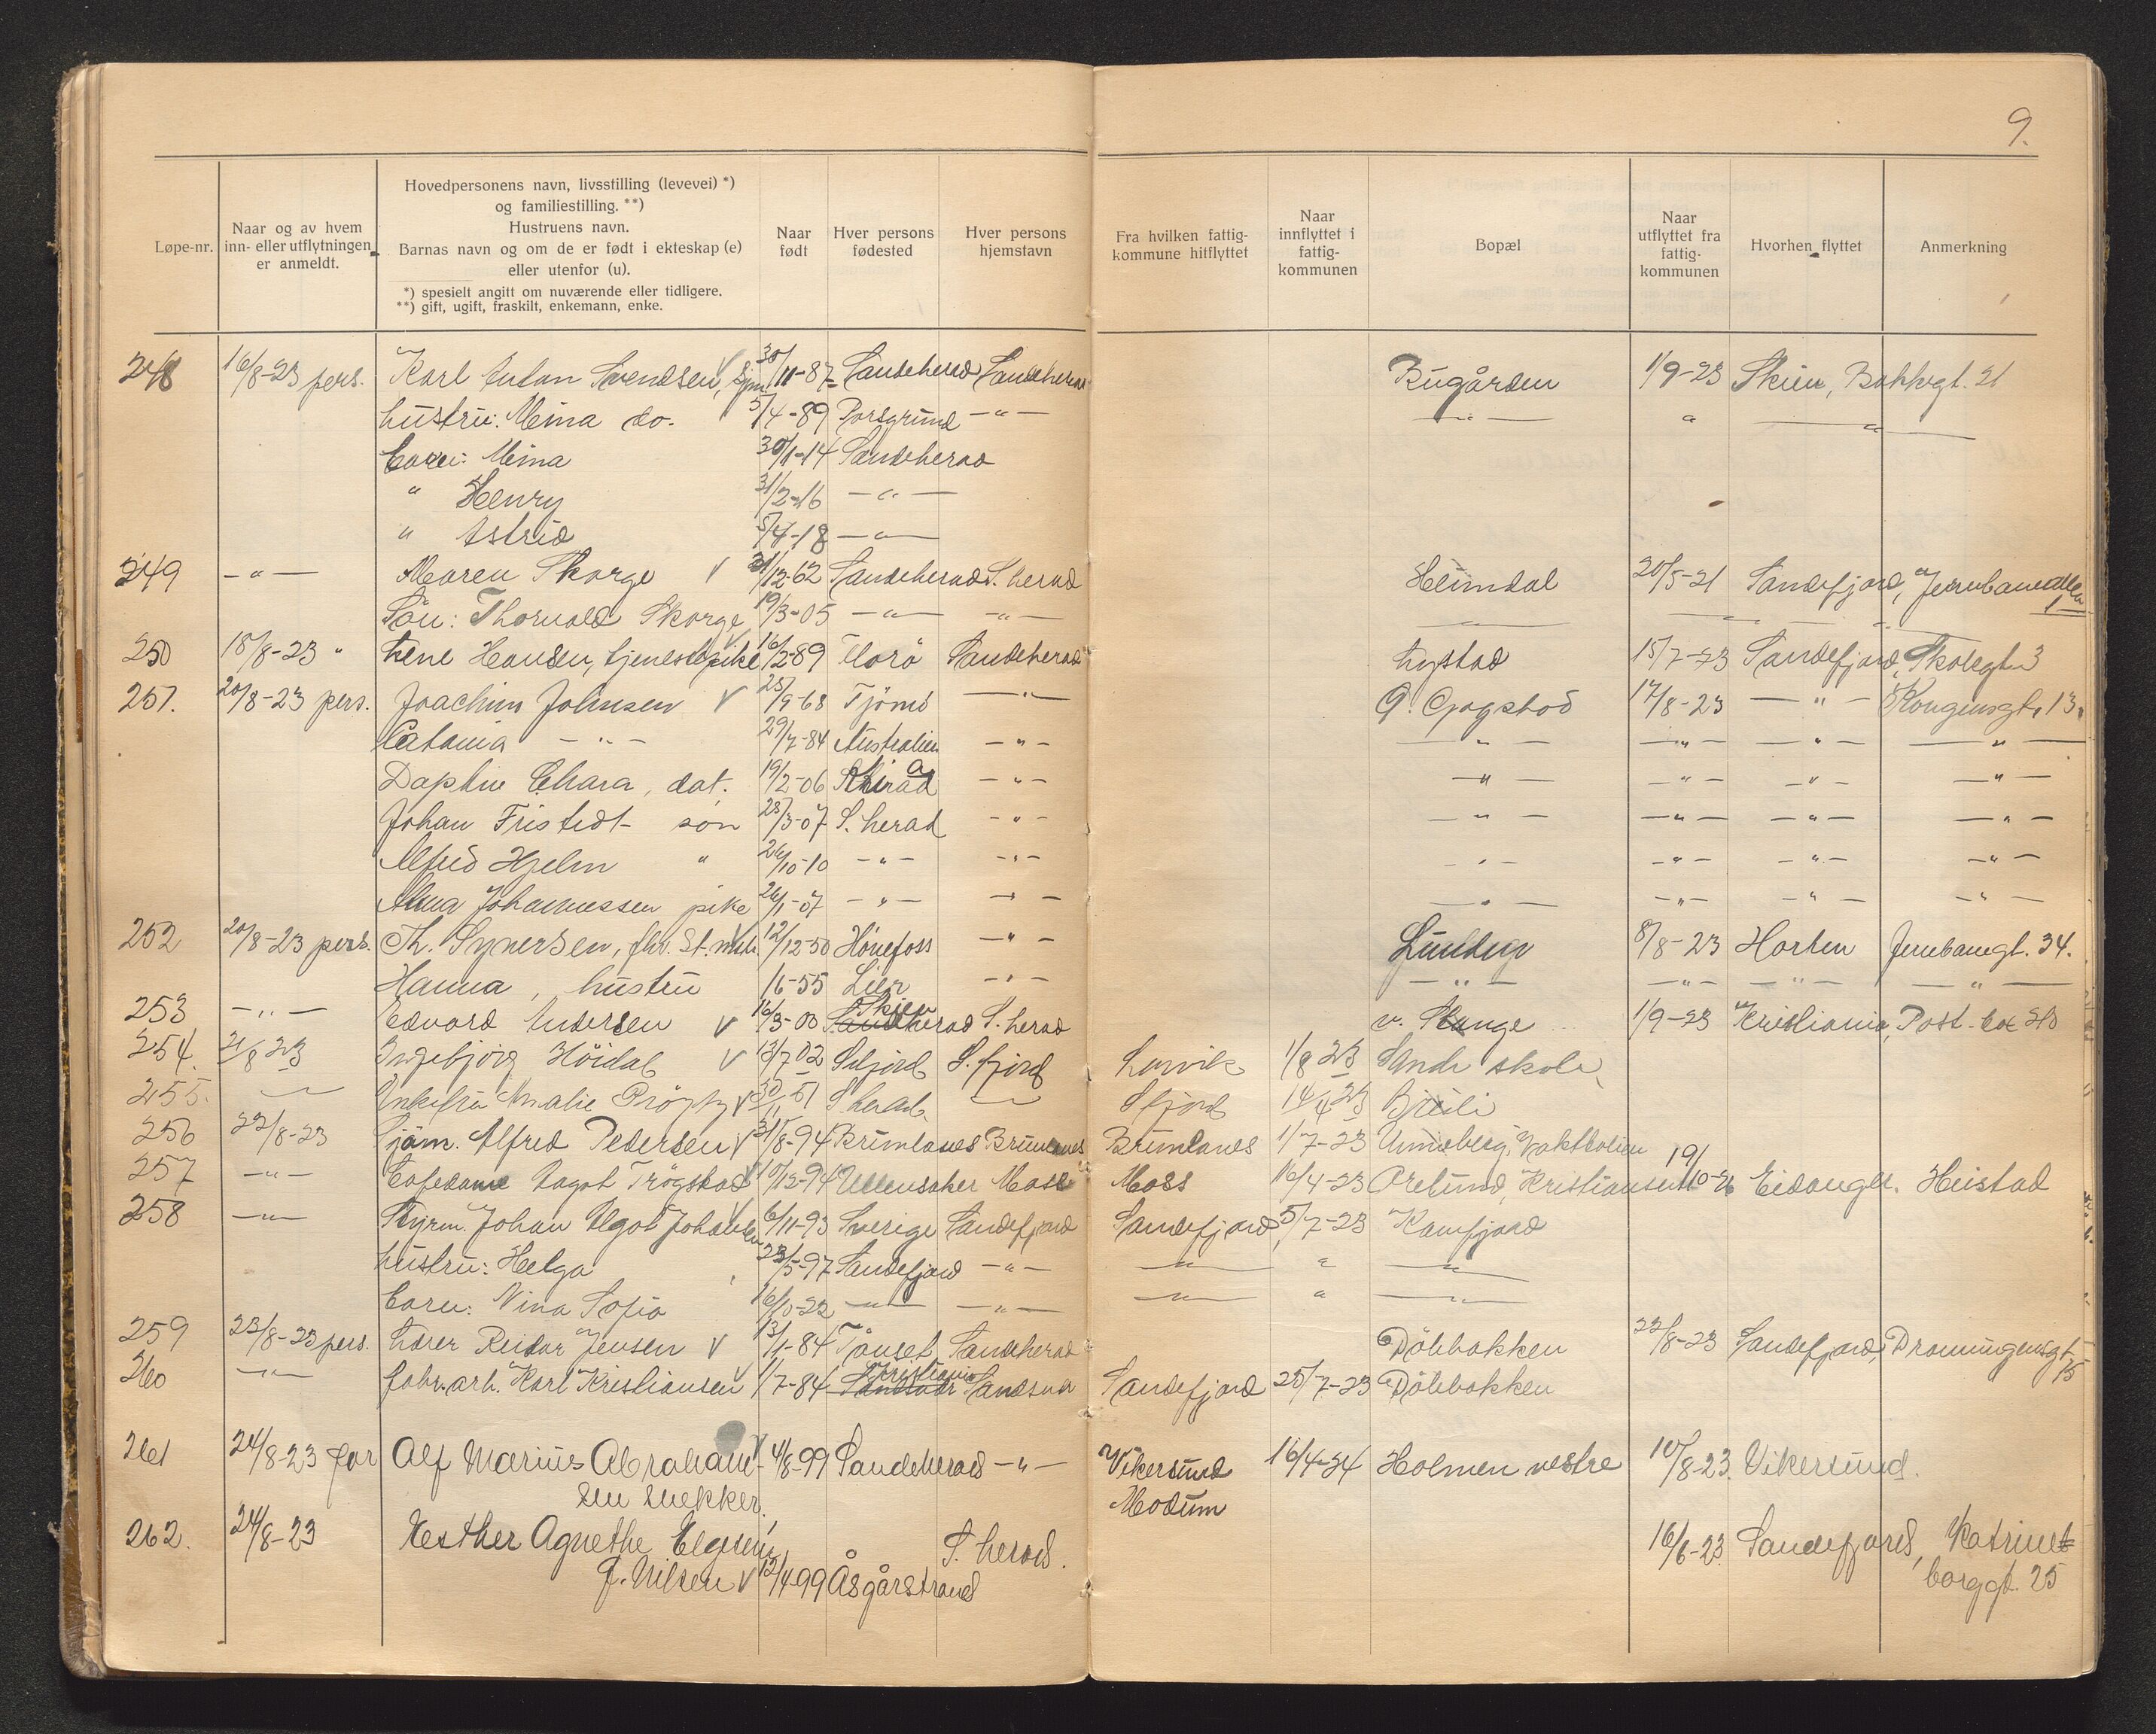 9.
Løpe-nr. | Naar og av hvem inn- eller utflytningen er anmeldt. | Hovedpersonens navn, livsstilling (levevei) *) og familiestilling. **) Hustruens navn. Barnas navn og om de er født i ekteskap (e) eller utenfor (u). *) spesielt angitt om nuværende eller tidligere. **) gift, ugift, fraskilt, enkemann, enke. | Naar født | Hver persons fødested | Hver persons hjemstavn | Fra hvilken fattig-kommune hitflyttet | Naar innflyttet i fattig-kommunen | Bopæl | Naar utflyttet fra fattig-kommunen | Hvorhen flyttet | Anmerkning
248 16/8-23 pers. Karl Anton Svendsen, sjm 30/11-87 Sandeherad Sandeherad Bugården 1/9-23 Skien, Bakkegt. 21
hustru: Mina do. 5/4-89 Porsgrund -"- -"- " -"-
barn: Mina 30/1-14 Sandeherad
" Henry 31/2-16 -"-
" Astrid 5/4-18 -"-
249 -"- Maren Skorge 31/12-62 Sandeherad S. herad Heimdal 20/5-21 Sandefjord, Jernbanealleen 1
Sön: Thorvald Skorge 19/3-05 -"- -"- -"- -"- -"-
250 18/8-23 " Lene Hansen, tjenestepike 16/2-89 Florö Sandeherad Lystad 15/7-23 Sandefjord, Skolegt. 3
251. 20/8-23 pers. Joachim Johnsen 25/9-68 Tjömö -"- G. Gogstad 17/8-23 -"- Kongensgt. 13.
Catania -"- 29/7-84 Australien -"- -"- -"- -"- -"-
Daphne Chara, dat. 19/2-06 -"- -"- -"- -"- -"-
Johan Fristedt sön 28/3-07 S. herad -"- -"- -"- -"- -"-
Alfred Hjelm " 26/10-10 -"- -"- -"- -"- -"- -"-
Alma Johannessen pike 26/1-07 -"- -"- -"- -"- -"- -"-
252 20/8-23 pers. Th. Synersen, fhv. St. 12/12-50 Hönefoss -"- Lundeby 8/8-23 Horten Jernbanegt. 34.
Hanna, hustru /6-55 Lier -"- -"- -"- -"- -"-
253 -"- Edvard Andersen 16/3-00 Sandeherad Skien S. herad v. Stange 1/9-23 Kristiania, Post-box 210
254. 21/8 23 Ingebjörg Höidal 13/7 02 Seljord S. fjord Larvik 1/8 23 Sande skole
255. -"- Enkefru Amalie 30/1 51 S herad. -"- S fjord 14/4 23 Breili
256 22/8-23 Sjöm. Alfred Pedersen 31/8-94 Brunlanes Brunlanes Brunlanes 1/7-23 Unneberg, Vaktbolien
257 -"- Cafedame Dagot Trögstad 10/12-94 Ullensaker Moss Moss 16/4-23 Örelund, Kristiansen 19/10-26 Eidanger. Heistad
258 -"- Styrm. Johan Algot Johansen 6/11-93 Sverige Sandefjord Sandefjord 5/7-23 Kamfjord
hustru: Helga 23/5-97 Sandefjord -"- -"- " -"-
barn: Nina Sofia 16/10-22 -"- -"- -"- " -"-
259 23/8-23 pers. Lærer Reidar Jensen 13/1-84 Tönset Sandeherad Döbbakken 23/8-23 Sandefjord, Dronningensgt. 15
260 -"- fabr.arb. Karl Kristiansen 1/7-84 Kristiania Sandsvær Sandefjord 25/7-23 Döbbakken
261 24/8-23 far Alf Marius Abraham- 4/8-99 Sandeherad -"- Vikersund 16/4-24 Holmen vestre 10/8-23. Vikersund.
sen snekker, Modum
262. 24/8-23 Esther Agnethe S. herad. 16/6-23. Sandefjord, Katrine-
f. Nilsen 15/4-99 Åsgårstrand borggt. 25